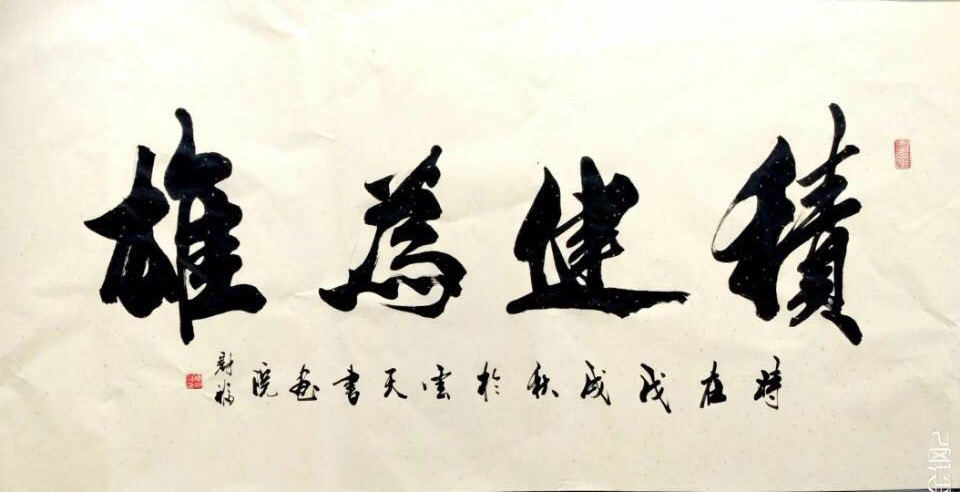 積健為雄
時在戊戌秋於雲天書画院